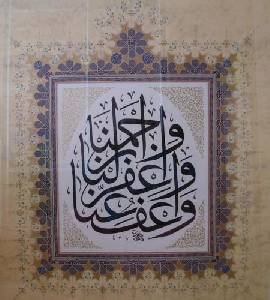 واعف عنا
واغفر لنا
وارحمنا